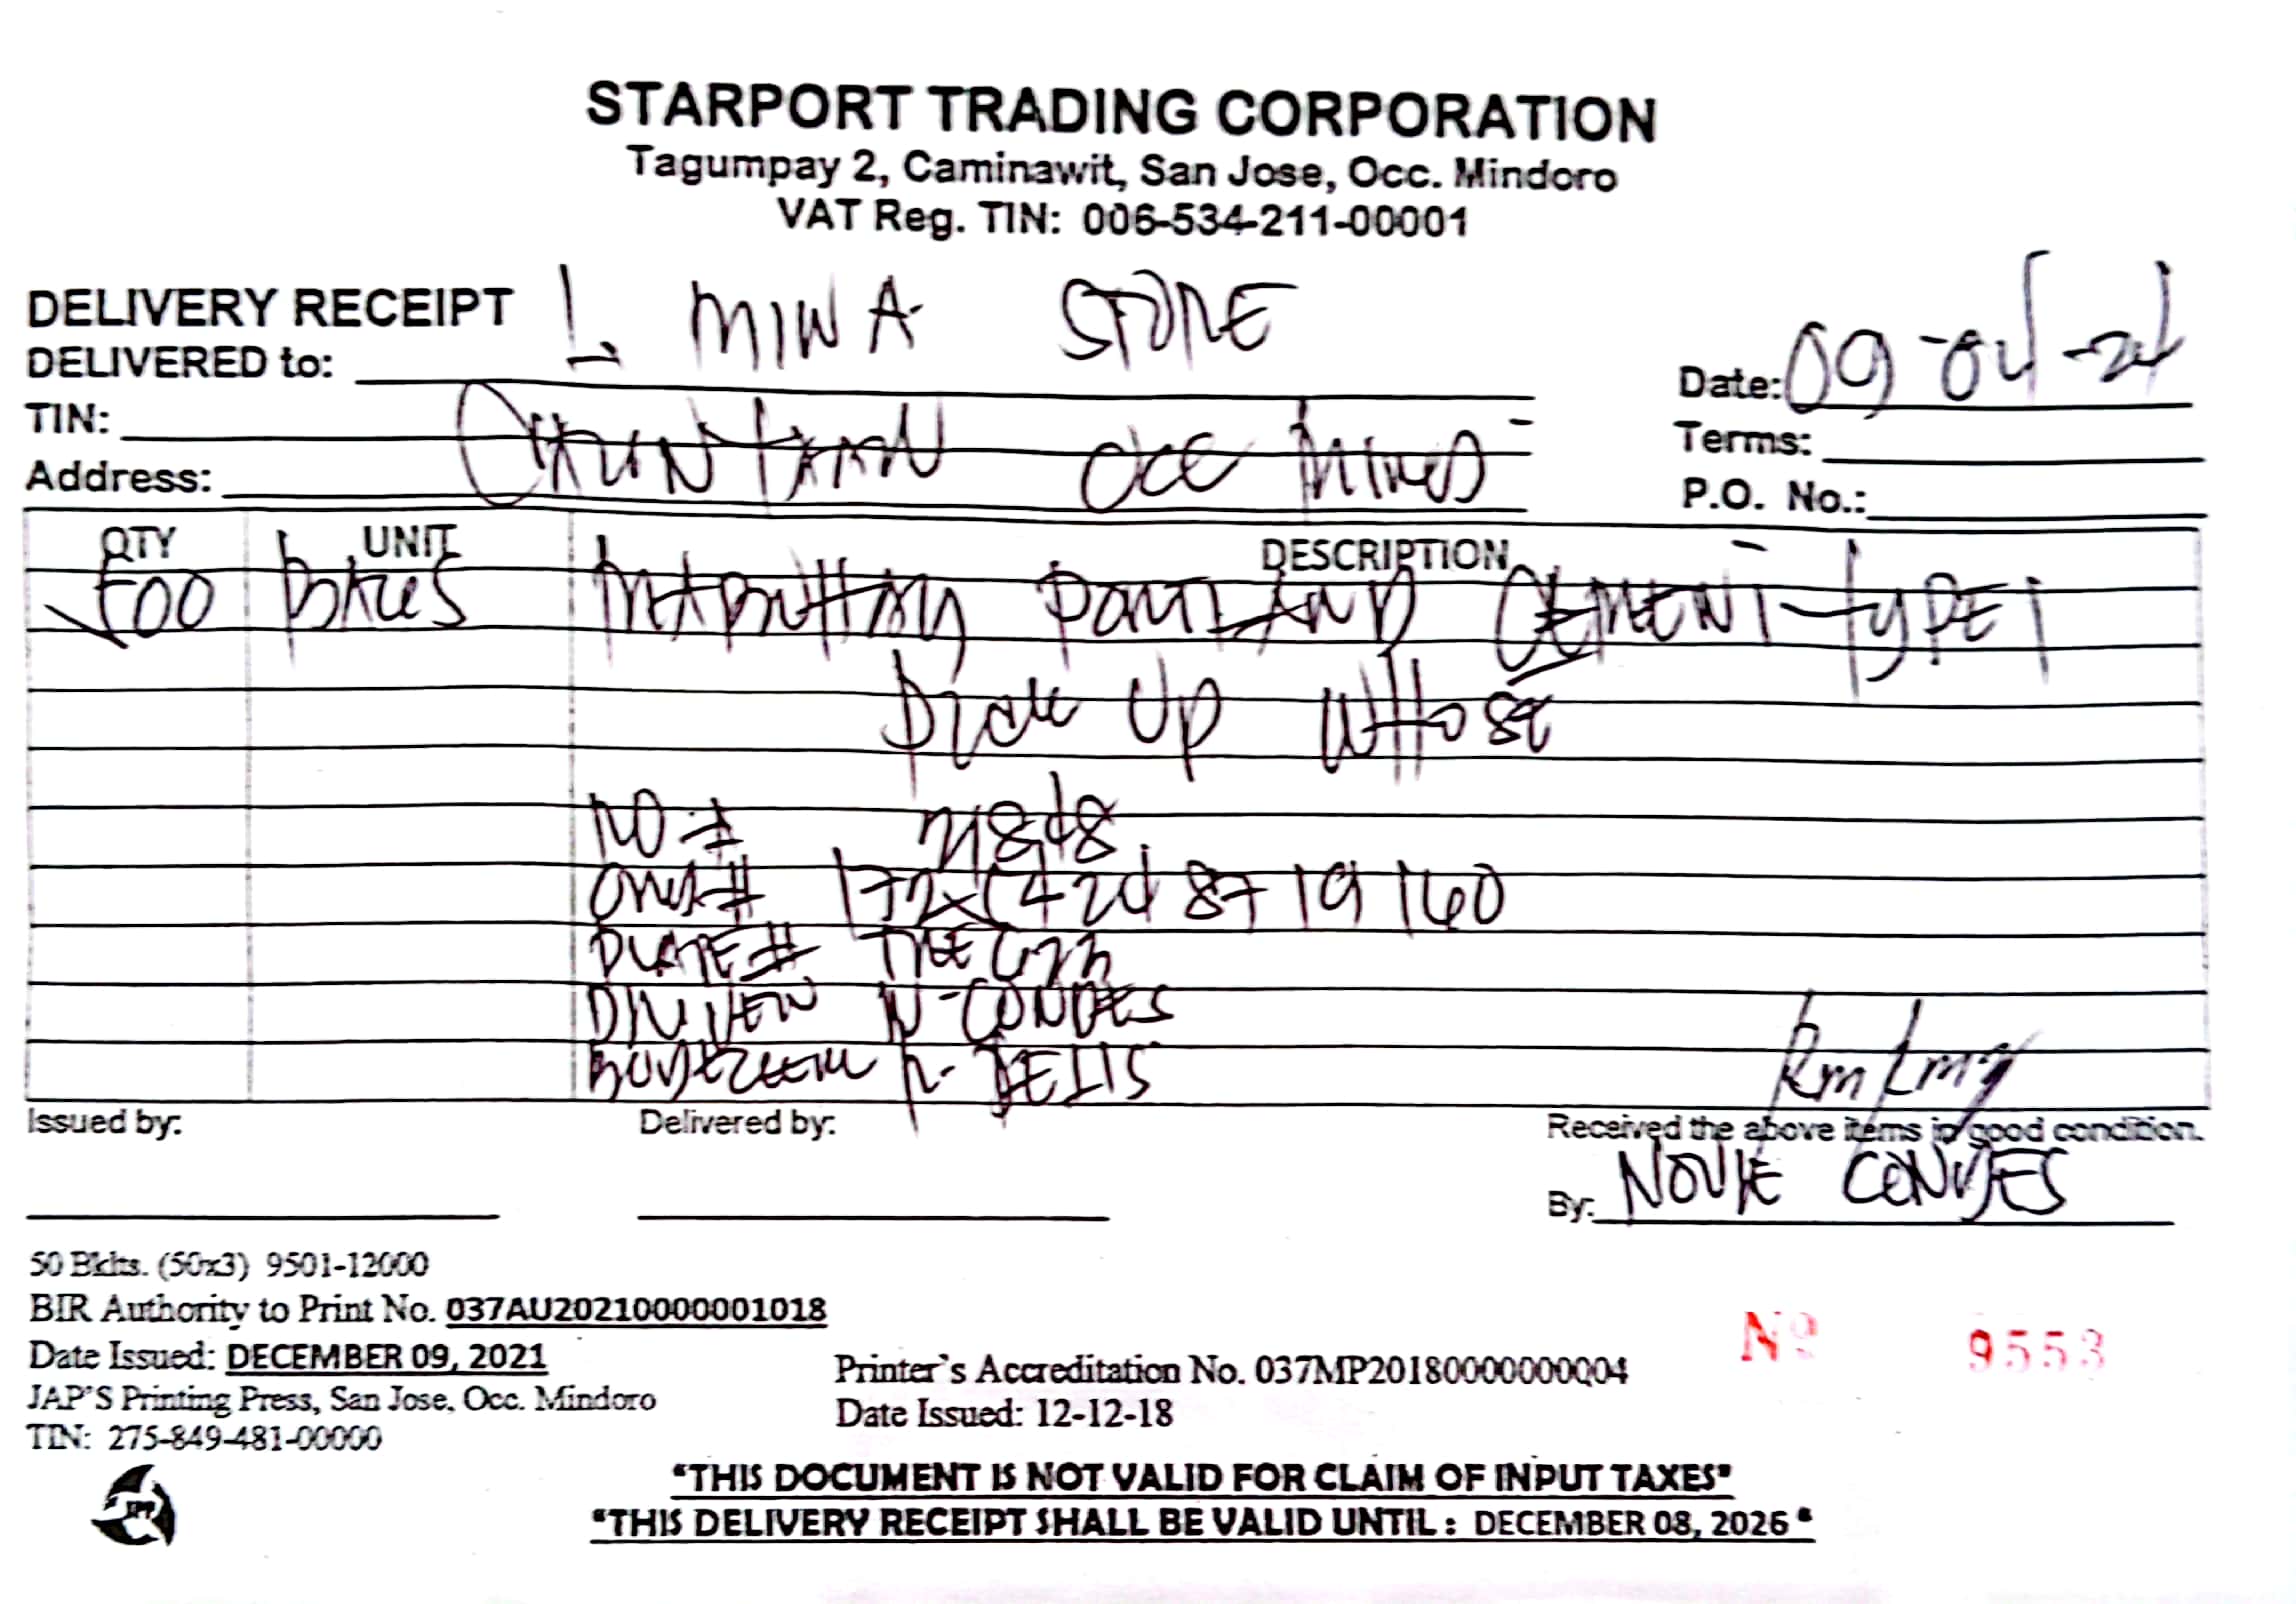 STARPORT TRADING CORPORATION
Tagumpay 2, Caminawit, San Jose, Occ. Mindoro
VAT Reg. TIN: 006-534-211-00001
DELIVERY RECEIPT
DELIVERED to: L. MINA STORE
Date: 09-04-24
TIN:
Terms:
Address: OCC MINDO
P.O. No.:
QTY UNIT DESCRIPTION
500 BAGS PORTLAND CEMENT - TYPE 1
PICK UP WHOSE
NO #
PLATE #
DRIVER N-CONDES
Issued by:
Delivered by:
Received the above items in good condition.
By: NOVIE CONDES
50 Bklts. (50x3) 9501-12000
BIR Authority to Print No. 037AU20210000001018
Date Issued: DECEMBER 09, 2021
JAP'S Printing Press, San Jose, Occ. Mindoro
TIN: 275-849-481-00000
Printer's Accreditation No. 037MP20180000000004
Date Issued: 12-12-18
Nº 9553
JPP
"THIS DOCUMENT IS NOT VALID FOR CLAIM OF INPUT TAXES"
"THIS DELIVERY RECEIPT SHALL BE VALID UNTIL : DECEMBER 08, 2026"